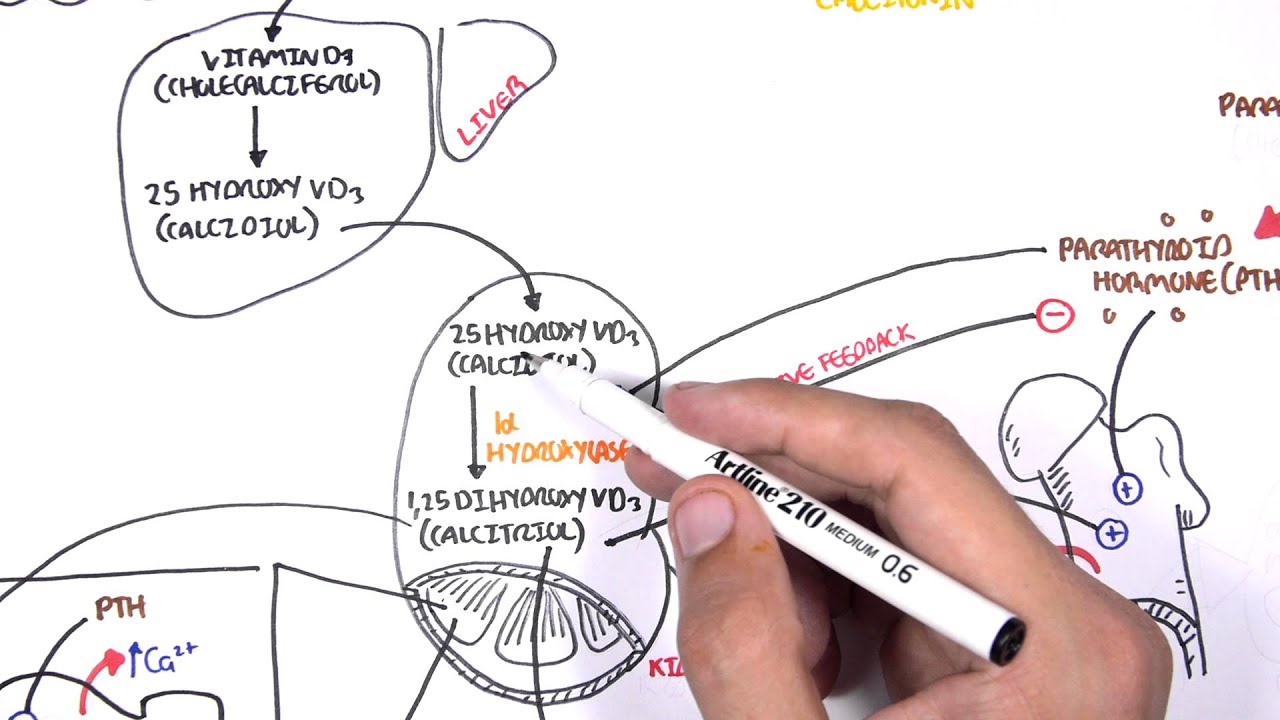 CALCITONIN
VITAMIN D3
(CHOLECALCIFEROL)
LIVER
PARA
25 HYDROXY VD3
(CALCIDIOL)
PARATHYROID
HORMONE (PTH
−
25 HYDROXY VD3
FEEDBACK
1α
HYDROXYLASE
1,25 DIHYDROXY VD3
(CALCITRIOL)
Artline 210 MEDIUM 0.6
+
+
PTH
↑Ca2+
KI